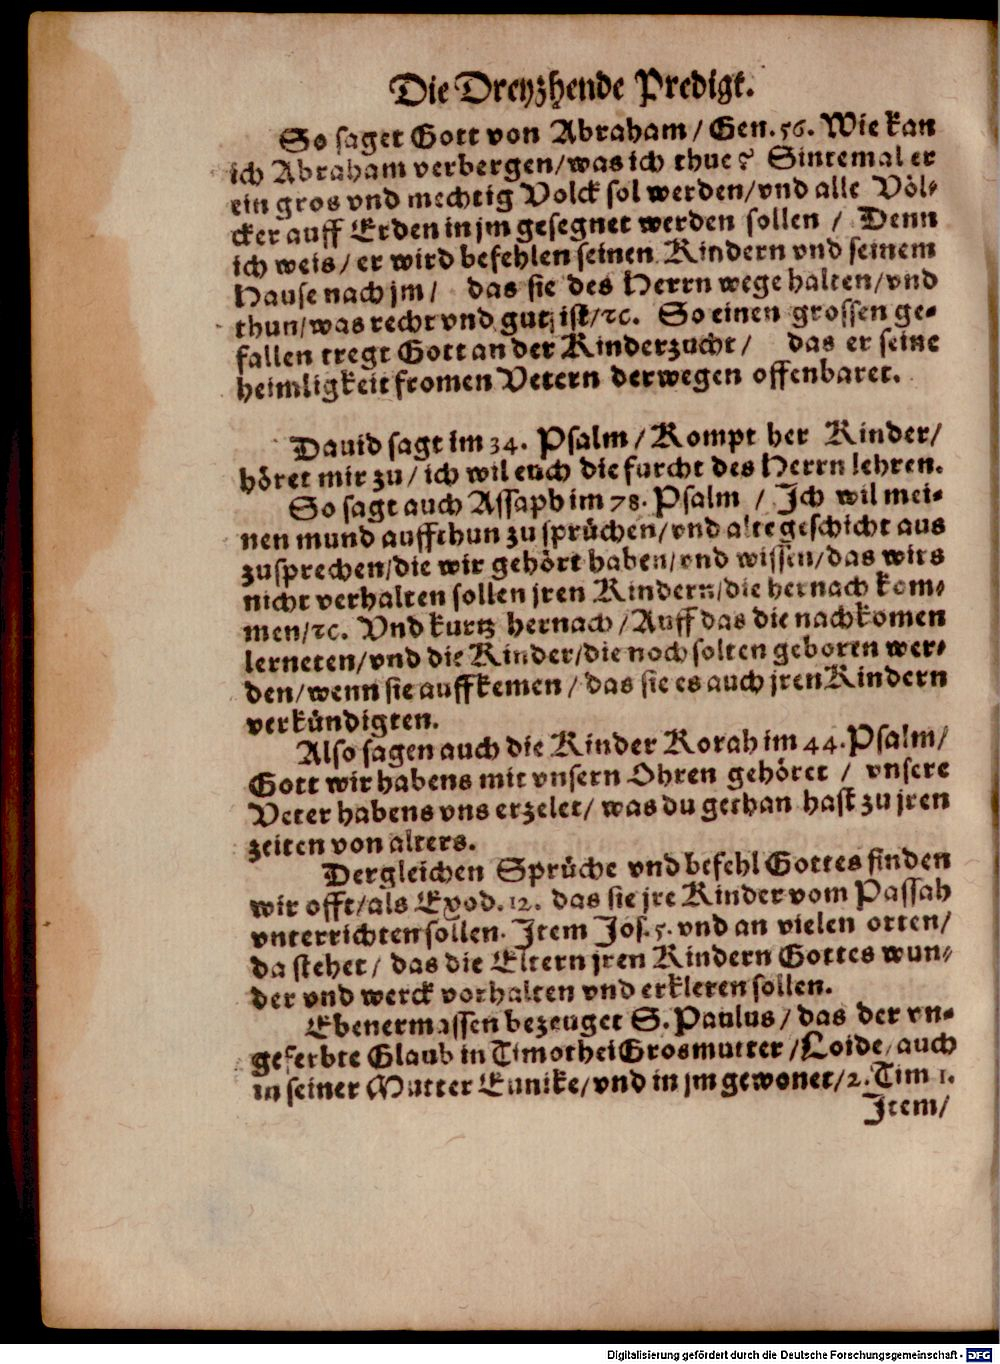 Die Dreyzhende Predigt.
So saget Gott von Abraham / Gen. 56. Wie kan
ich Abraham verbergen / was ich thue? Sintemal er
ein gros vnd mechtig Volck sol werden / vnd alle Völ⸗
cker auff Erden in jm gesegnet werden sollen / Denn
ich weis / er wird befehlen seinen Kindern vnd seinem
Hause nach jm / das sie des Herrn wege halten / vnd
thun / was recht vnd gut ist / ꝛc. So einen grossen ge⸗
fallen tregt Gott an der Kinderzucht / das er seine
heimligkeit fromen Vetern derwegen offenbaret.
Dauid sagt im 34. Psalm / Kompt her Kinder /
höret mir zu / ich wil euch die furcht des Herrn lehren.
So sagt auch Assaph im 78. Psalm / Ich wil mei⸗
nen mund auffthun zu sprüchen / vnd alte geschicht aus
zusprechen / die wir gehört haben / vnd wissen / das wirs
nicht verhalten sollen jren Kindern / die hernach kom⸗
men / ꝛc. Vnd kurtz hernach / Auff das die nachkomen
lerneten / vnd die Kinder / die noch solten geboren wer⸗
den / wenn sie auffkemen / das sie es auch jren Kindern
verkündigten.
Also sagen auch die Kinder Korah im 44. Psalm /
Gott wir habens mit vnsern Ohren gehöret / vnsere
Veter habens vns erzelet / was du gethan hast zu jren
zeiten von alters.
Dergleichen Sprüche vnd befehl Gottes finden
wir offt / als Exod. 12. das sie jre Kinder vom Passah
vnterrichten sollen. Item Jos. 5. vnd an vielen orten /
da stehet / das die Eltern jren Kindern Gottes wun⸗
der vnd werck vorhalten vnd erkleren sollen.
Ebenermassen bezeuget S. Paulus / das der vn⸗
geferbte Glaub in Timothei Grosmutter / Loide / auch
in seiner Mutter Eunike / vnd in jm gewonet / 2. Tim 1.
Item /
Digitalisierung gefördert durch die Deutsche Forschungsgemeinschaft - DFG